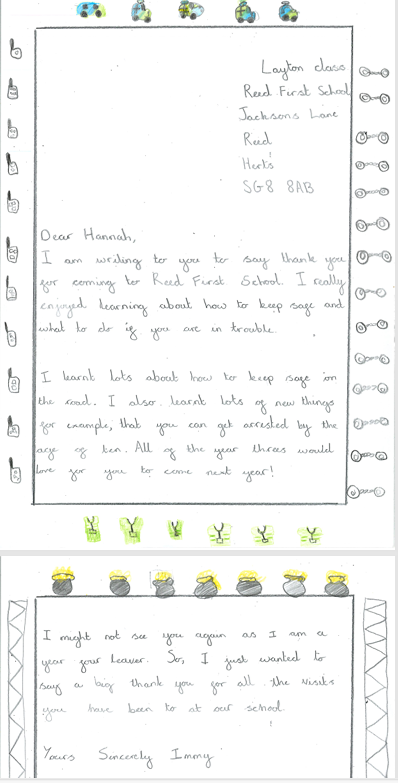 Layton class
Reed First School
Jacksons Lane
Reed
Herts
SG8 8AB
Dear Hannah,
I am writing to you to say thank you
for coming to Reed First School. I really
enjoyed learning about how to keep safe and
what to do if you are in trouble.
I learnt lots about how to keep safe on
the road. I also learnt lots of new things
for example, that you can get arrested by the
age of ten. All of the year threes would
love for you to come next year!
I might not see you again as I am a
year four leaver. So, I just wanted to
say a big thank you for all the visits
you have been to at our school.
Yours Sincerely Immy